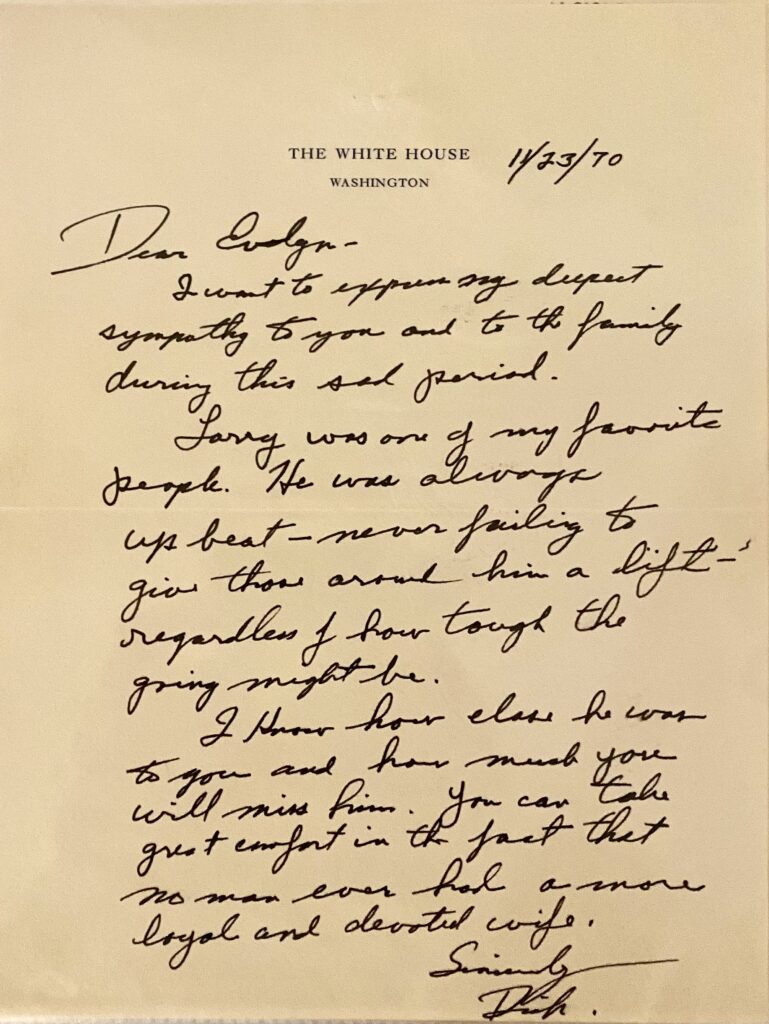 THE WHITE HOUSE
WASHINGTON
11/23/70
Dear Evelyn -
I want to express my deepest
sympathy to you and to the family
during this sad period.
Larry was one of my favorite
people. He was always
up beat - never failing to
give those around him a lift -
regardless of how tough the
going might be.
I know how close he was
to you and how much you
will miss him. You can take
great comfort in the fact that
no man ever had a more
loyal and devoted wife.
Sincerely
Dick.